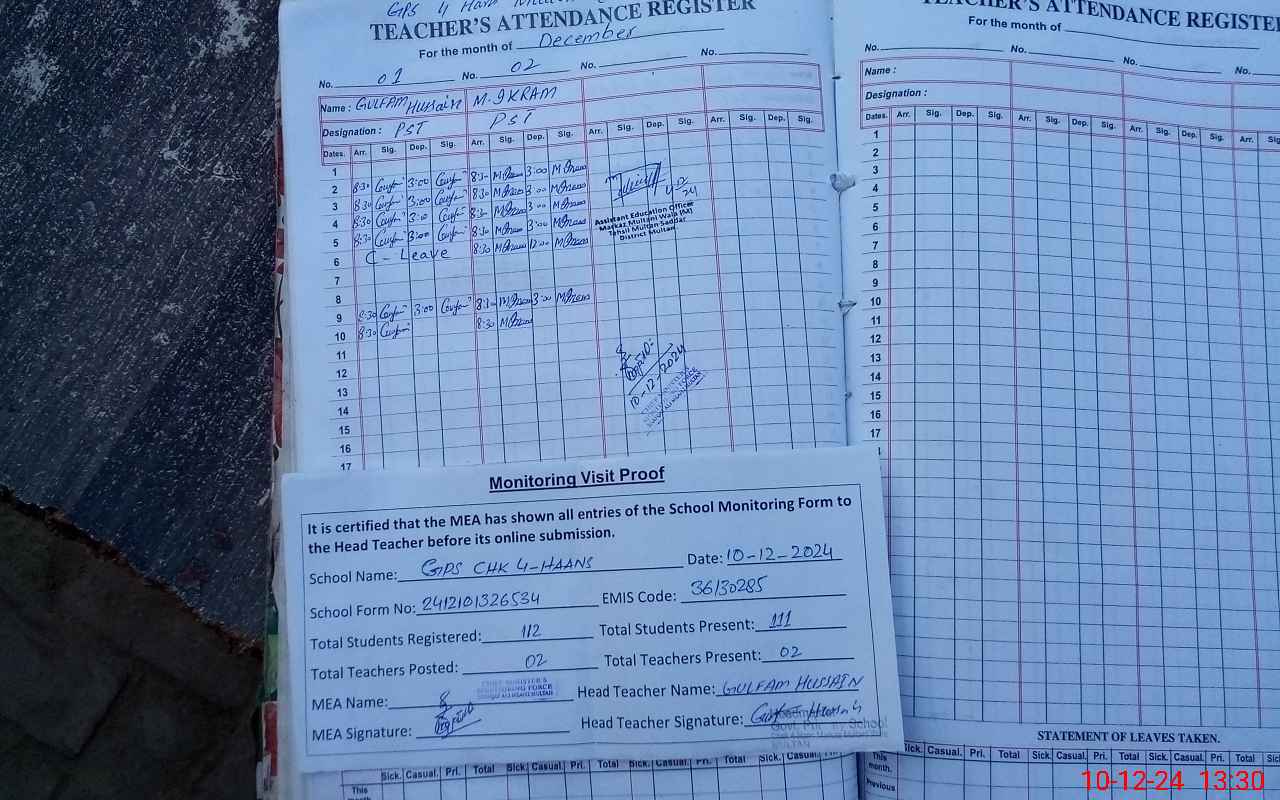 TEACHER'S ATTENDANCE REGISTER
For the month of December
No. 01 No. 02 No. No.
Name : GULFAM HUSSAIN M. IKRAM
Designation : PST PST
Dates. Arr. Sig. Dep. Sig. Arr. Sig. Dep. Sig. Arr. Sig. Dep. Sig. Arr. Sig. Dep. Sig.
1
2 8:30 3:00 8:30 3:00
3 8:30 3:00 8:30 3:00
4 8:30 3:00 8:30 3:00
5 8:30 3:00 8:30 3:00
6 C - Leave 8:30 12:00
7
8
9 8:30 3:00 8:30 3:00
10 8:30 8:30
11
12
13
14
15
16
17
Assistant Education Officer
Markaz Multani Wala (M)
Tehsil Multan Saddar
District Multan.
10-12-2024
Monitoring Visit Proof
It is certified that the MEA has shown all entries of the School Monitoring Form to
the Head Teacher before its online submission.
School Name: GPS CHK 4-HAANS Date: 10-12-2024
School Form No: 2412101326534 EMIS Code: 36130285
Total Students Registered: 112 Total Students Present: 111
Total Teachers Posted: 02 Total Teachers Present: 02
MEA Name: Head Teacher Name: GULFAM HUSSAIN
MEA Signature: Head Teacher Signature:
CHIEF MINISTER'S
MONITORING FORCE
MULTAN
Sick. Casual. Pri. Total Sick. Casual. Pri. Total Sick. Casual. Pri. Total Sick. Casual. Pri. Total
This
month.
TEACHER'S ATTENDANCE REGISTER
For the month of
No. No. No. No.
Name :
Designation :
Dates. Arr. Sig. Dep. Sig. Arr. Sig. Dep. Sig. Arr. Sig. Dep. Sig. Arr. Sig.
1
2
3
4
5
6
7
8
9
10
11
12
13
14
15
16
17
STATEMENT OF LEAVES TAKEN.
Sick. Casual. Pri. Total Sick. Casual. Pri. Total Sick. Casual. Pri. Total Sick.
This
month.
Previous
10-12-24 13:30